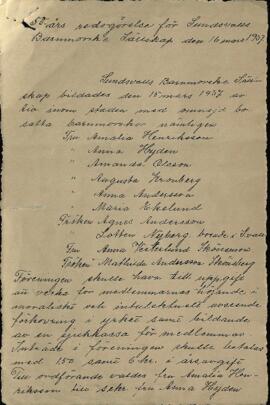 50 års redogörelse för Sundsvalls
Barnmorske Sällskap den 16 mars 1957
Sundsvalls Barnmorske Säll-
skap bildades den 15 mars 1957 av
tio inom staden med omnejd bo
satta barnmorskor nämligen
Fru Amalia Henriksson
" Anna Hyden
" Amanda Olsson
" Augusta Kronberg
" Anna Andersson
" Maria Ekelund
Fröken Agnes Andersson
" Lotten Nyberg
Fru Anna
Fröken Mathilda Andersson
Föreningen skulle hava till uppgift
att verka för medlemmarnas höjande i
moraliskt och intelektuelt avseende
förkovring i yrket samt bildande
av en sjukkassa för medlemmar
Inträde i föreningen skulle betalas
med 1.50 samt 6 kr. i årsavgift
Till ordförande valdes fru Amalia Hen-
riksson till sekr. fru Anna Hyden